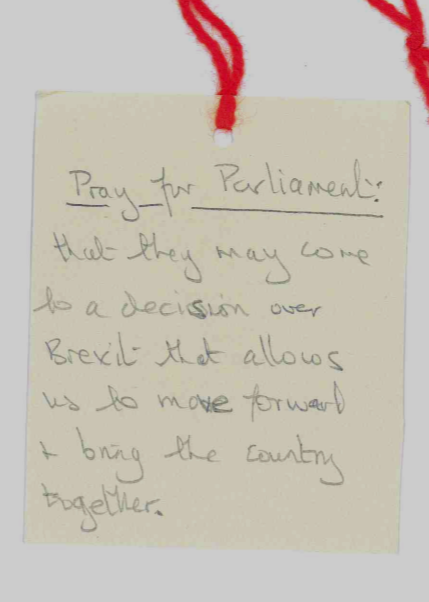 Pray for Parliament:
that they may come
to a decision over
Brexit that allows
us to move forward
+ bring the country
together.